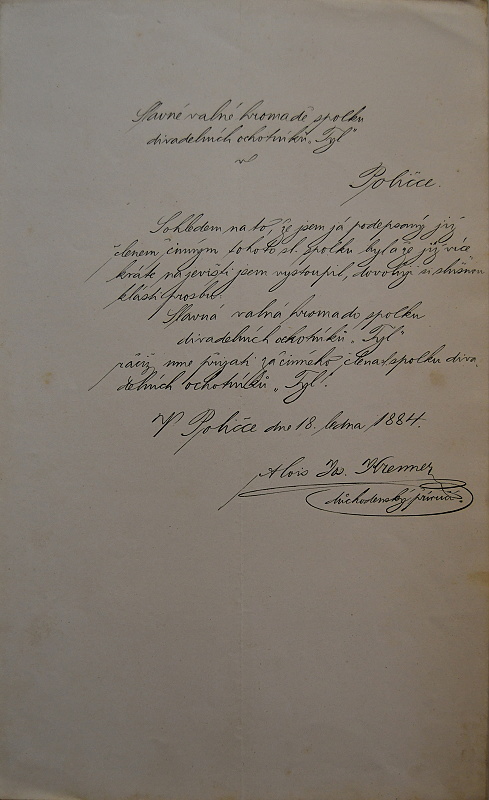 Slavné valné hromadě spolku
divadelních ochotníků „Tyl“
v
Poličce.
Sohledem na to, že jsem já podepsaný již
členem činným tohoto sl. spolku byl a že již více
kráte na jevišti jsem vystoupil, dovoluji si slušnou
klásti prosbu:
Slavná valná hromado spolku
divadelních ochotníků „Tyl“
račiž mne přijati za činného člena spolku diva-
delních ochotníků „Tyl“.
V Poličce dne 18. ledna 1884.
Alois Jos. Kremer
důchodenský příručí.